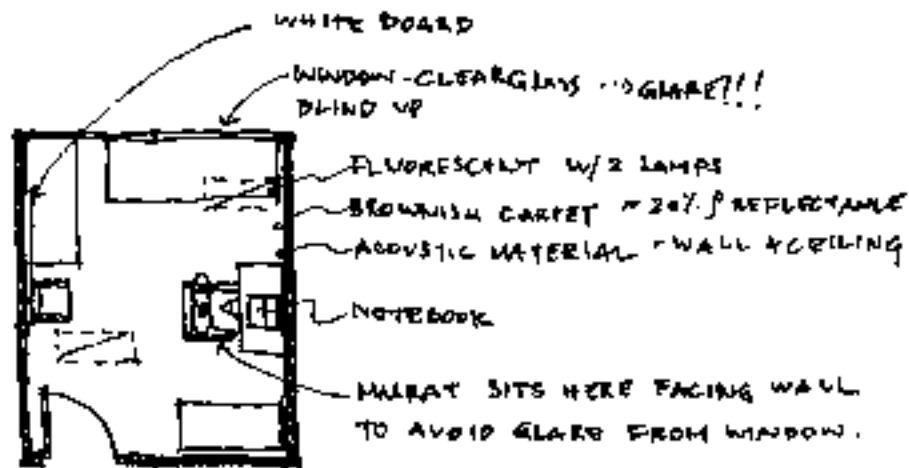 WHITE BOARD
WINDOW - CLEAR GLASS → GLARE?!!
BLIND UP
FLUORESCENT W/ 2 LAMPS
BROWNISH CARPET ~ 20% ρ REFLECTANCE
ACOUSTIC MATERIAL - WALL & CEILING
NOTEBOOK
MURAT SITS HERE FACING WALL
TO AVOID GLARE FROM WINDOW.